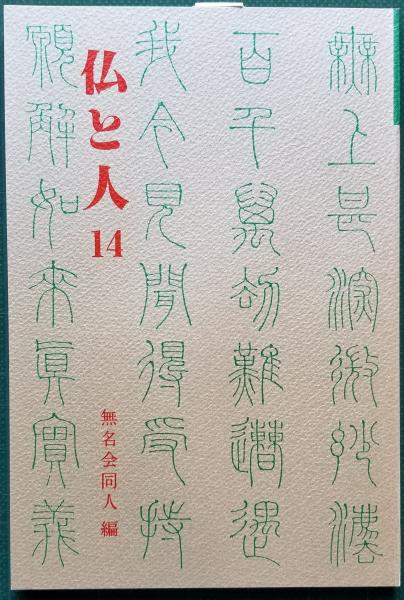 無上甚深微妙法
百千萬劫難遭遇
我今見聞得受持
仏と人
14
無名会同人 編
願解如來眞實義